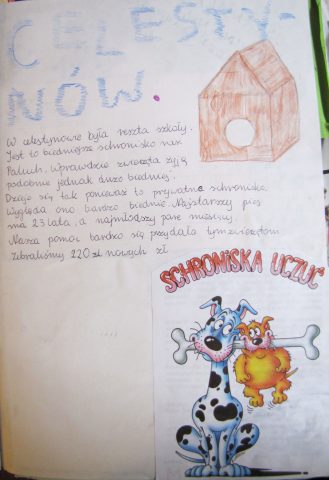 CELESTY-
NÓW.
W celestynowie była reszta szkoły.
Jest to biedniejsze schronisko niż
Paluch. Wprawdzie zwierzęta żyją
podobnie jednak dużo biedniej.
Dzieje się tak ponieważ to prywatne schronisko.
Wygląda ono bardzo biednie. Najstarszy pies
ma 23 lata, a najmłodszy parę miesięcy.
Nasza pomoc bardzo się przydała tym zwierzętom
Zebraliśmy 220 zł nowych zł
SCHRONISKA UCZUĆ